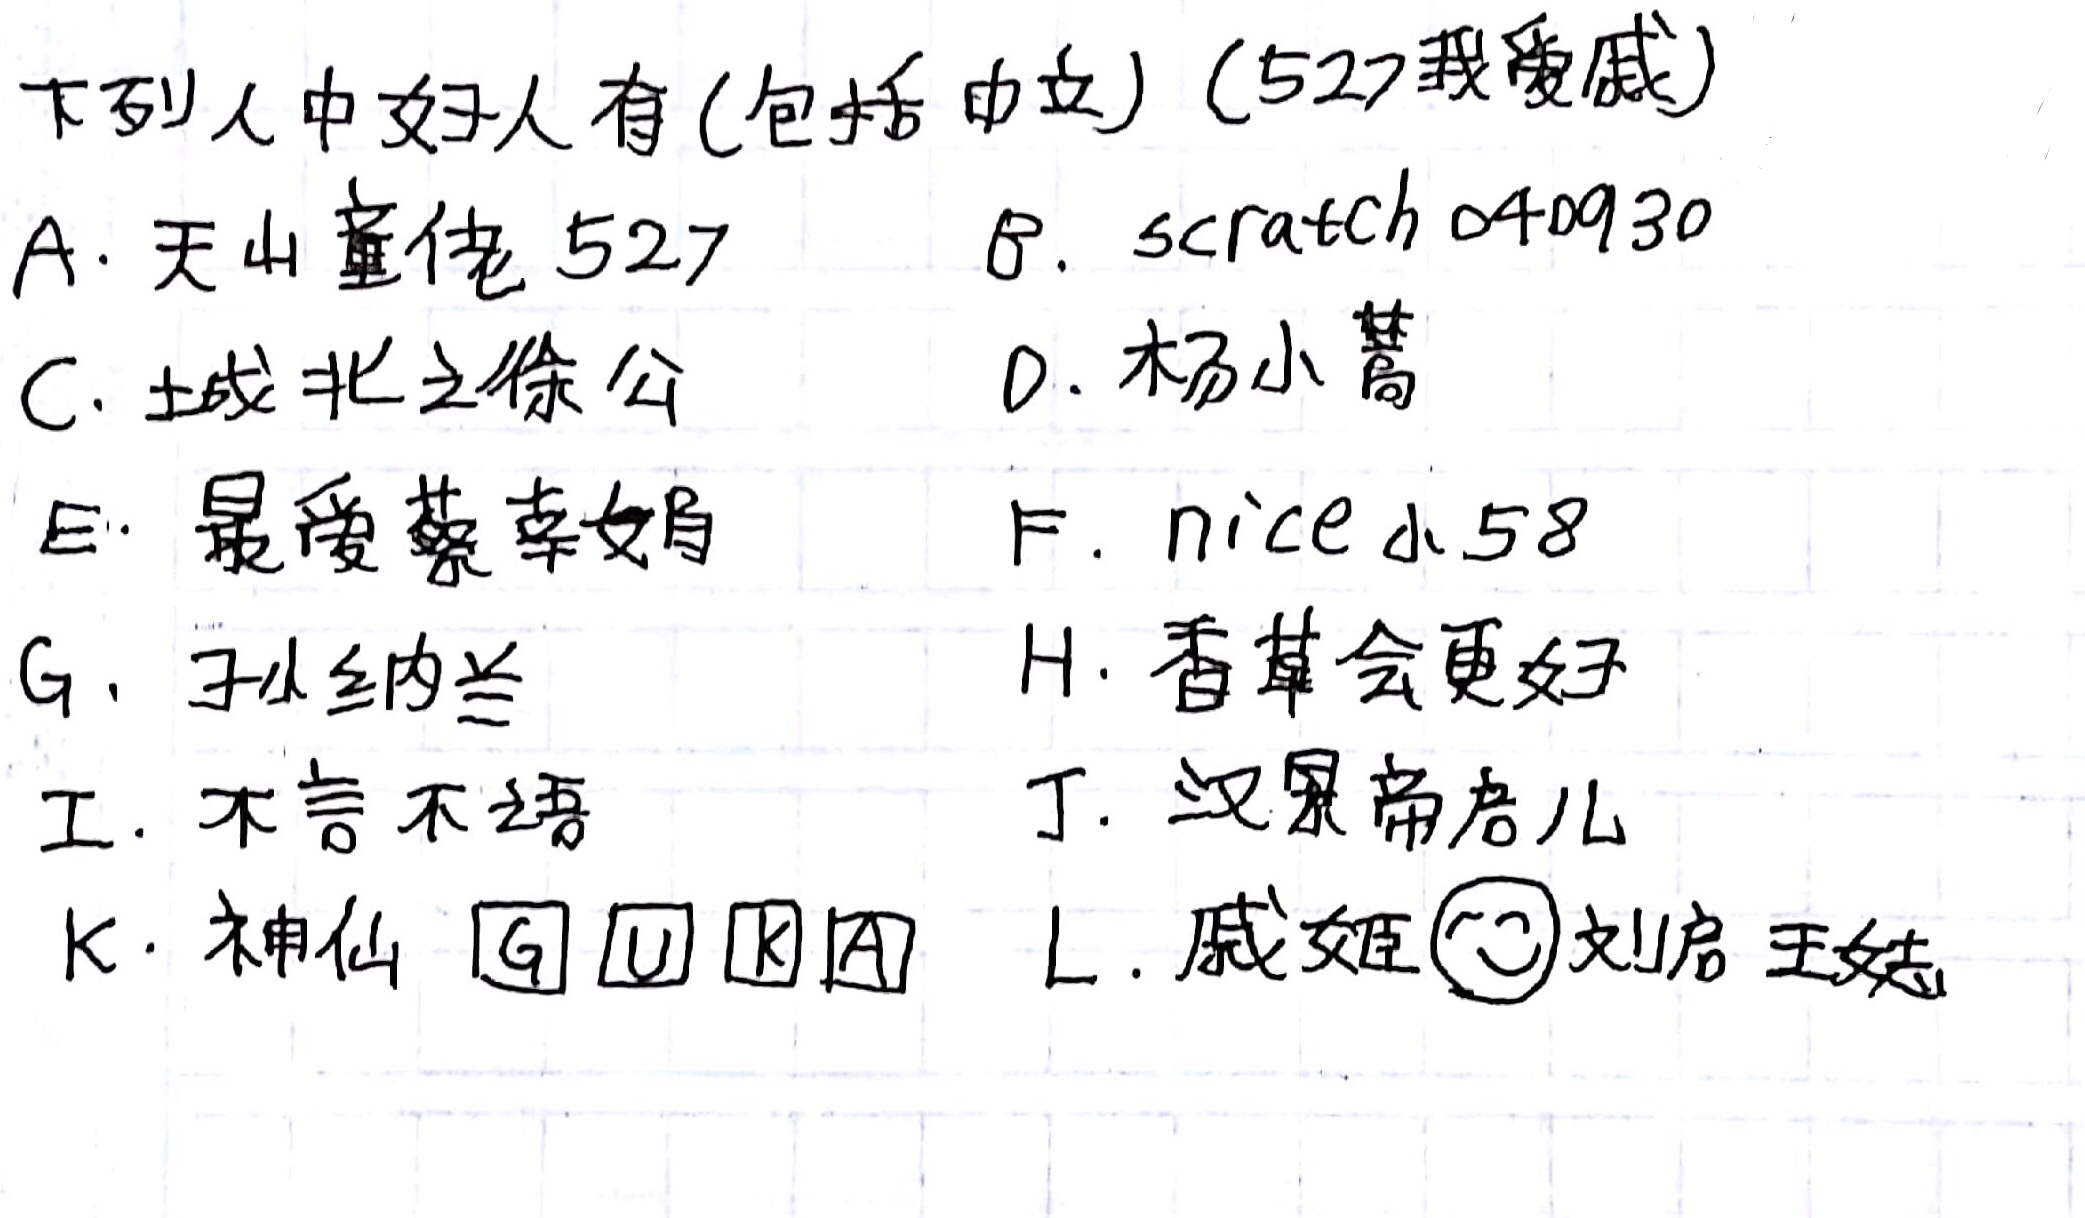 下列人中好人有(包括中立) (527我爱戚)
A. 天山童佬527 B. scratch040930
C. 城北之徐公 D. 杨小蒿
E. 最爱蔡幸娟 F. nice小58
G. 孙纳兰 H. 香草会更好
I. 不言不语 J. 汉景帝启儿
K. 神仙 G U K A L. 戚姬 刘启 王娡